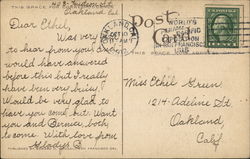 THIS SPACE
Oakland Cal.
Dear Ethel,
Was very
to hear from you
would have answered
before this but I really
have been very busy.
Would be very glad to
have you come, but want
you and Bernice both
to come. With love from
Gladys B.
Post
Card
OAKLAND
OCT 10
WORLD'S
EXPOSITION
SAN FRANCISCO
1915
THIS SPACE
Miss Ethel Green
1214 Adeline St.
Oakland
Calif